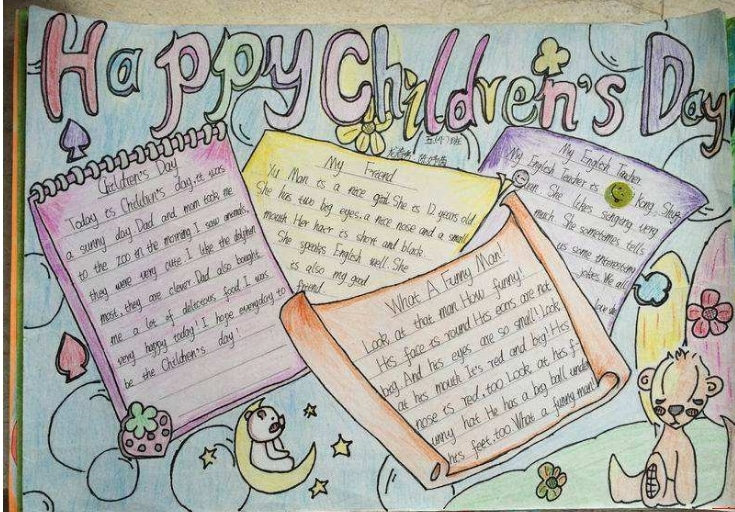 Happy Children's Day
Children's Day
Today is Children's day, it was
a sunny day. Dad and mom took me
to the zoo in the morning. I saw animals,
they were very cute. I like the dolphin
most, they are clever. Dad also bought
me a lot of delicious food. I was
very happy today! I hope everyday to
be the Children's day!
My Friend
Yu Man is a nice girl. She is 12 years old
She has two big eyes, a nice nose and a small
mouth. Her hair is short and black.
She speaks English well. She
is also my good
friend.
My English Teacher
My English Teacher is kong. She
She likes singing very
much. She sometimes tells
us some interesting
jokes. We all
love
What A Funny Man!
Look at that man. How funny!
His face is round. His ears are not
big. And his eyes are so small! Look
at his mouth. It's red and big! His
nose is red, too. Look at his f-
unny hat. He has a big ball under
his feet, too. What a funny man!